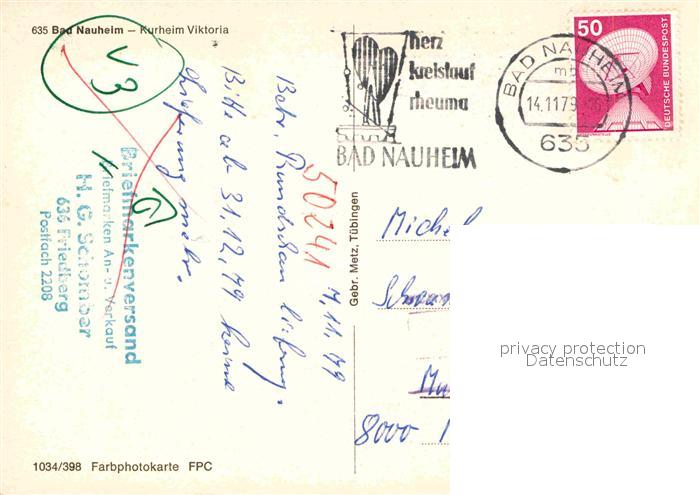 635 Bad Nauheim – Kurheim Viktoria
V3
herz
kreislauf
rheuma
BAD NAUHEIM
BAD NAUHEIM
mb
14.11.79
635
50
DEUTSCHE BUNDESPOST
50241
14.11.79
Betr. Rundschau liefrg.
Bitte ab 31.12.79 keine
Lieferung mehr.
Briefmarkenversand
Briefmarken An- u. Verkauf
H. G. Schomber
636 Friedberg
Postfach 2208
Gebr. Metz, Tübingen
Michel
Schwan
Mu
8000
privacy protection
Datenschutz
1034/398 Farbphotokarte FPC